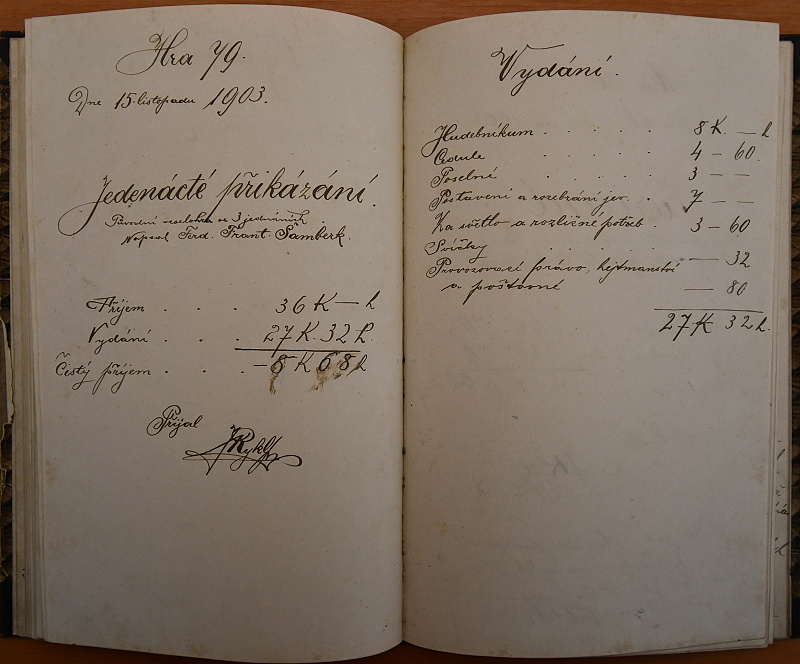 Hra 79.
Dne 15. listopadu 1903.
Jedenácté přikázání.
Původní veselohra ve 3 jednáních.
Napsal Ferd. Frant. Šamberk.
Příjem . . . 36 K — h
Vydání . . . 27 K. 32 h.
Čistý příjem . . . — 8 K 68 h
Přijal
Vydání.
Hudebníkum . . . . 8 K. — h
Cedule . . . . 4 — 60.
Poselné . . . . 3 — —
Postavení a rozebrání jev. . 7 — —
Za světlo a rozličné potřeb. . 3 — 60
Svíčky . . . . — 32
Provozovací právo, hejtmanství
a poštovné — 80
27 K 32 h.